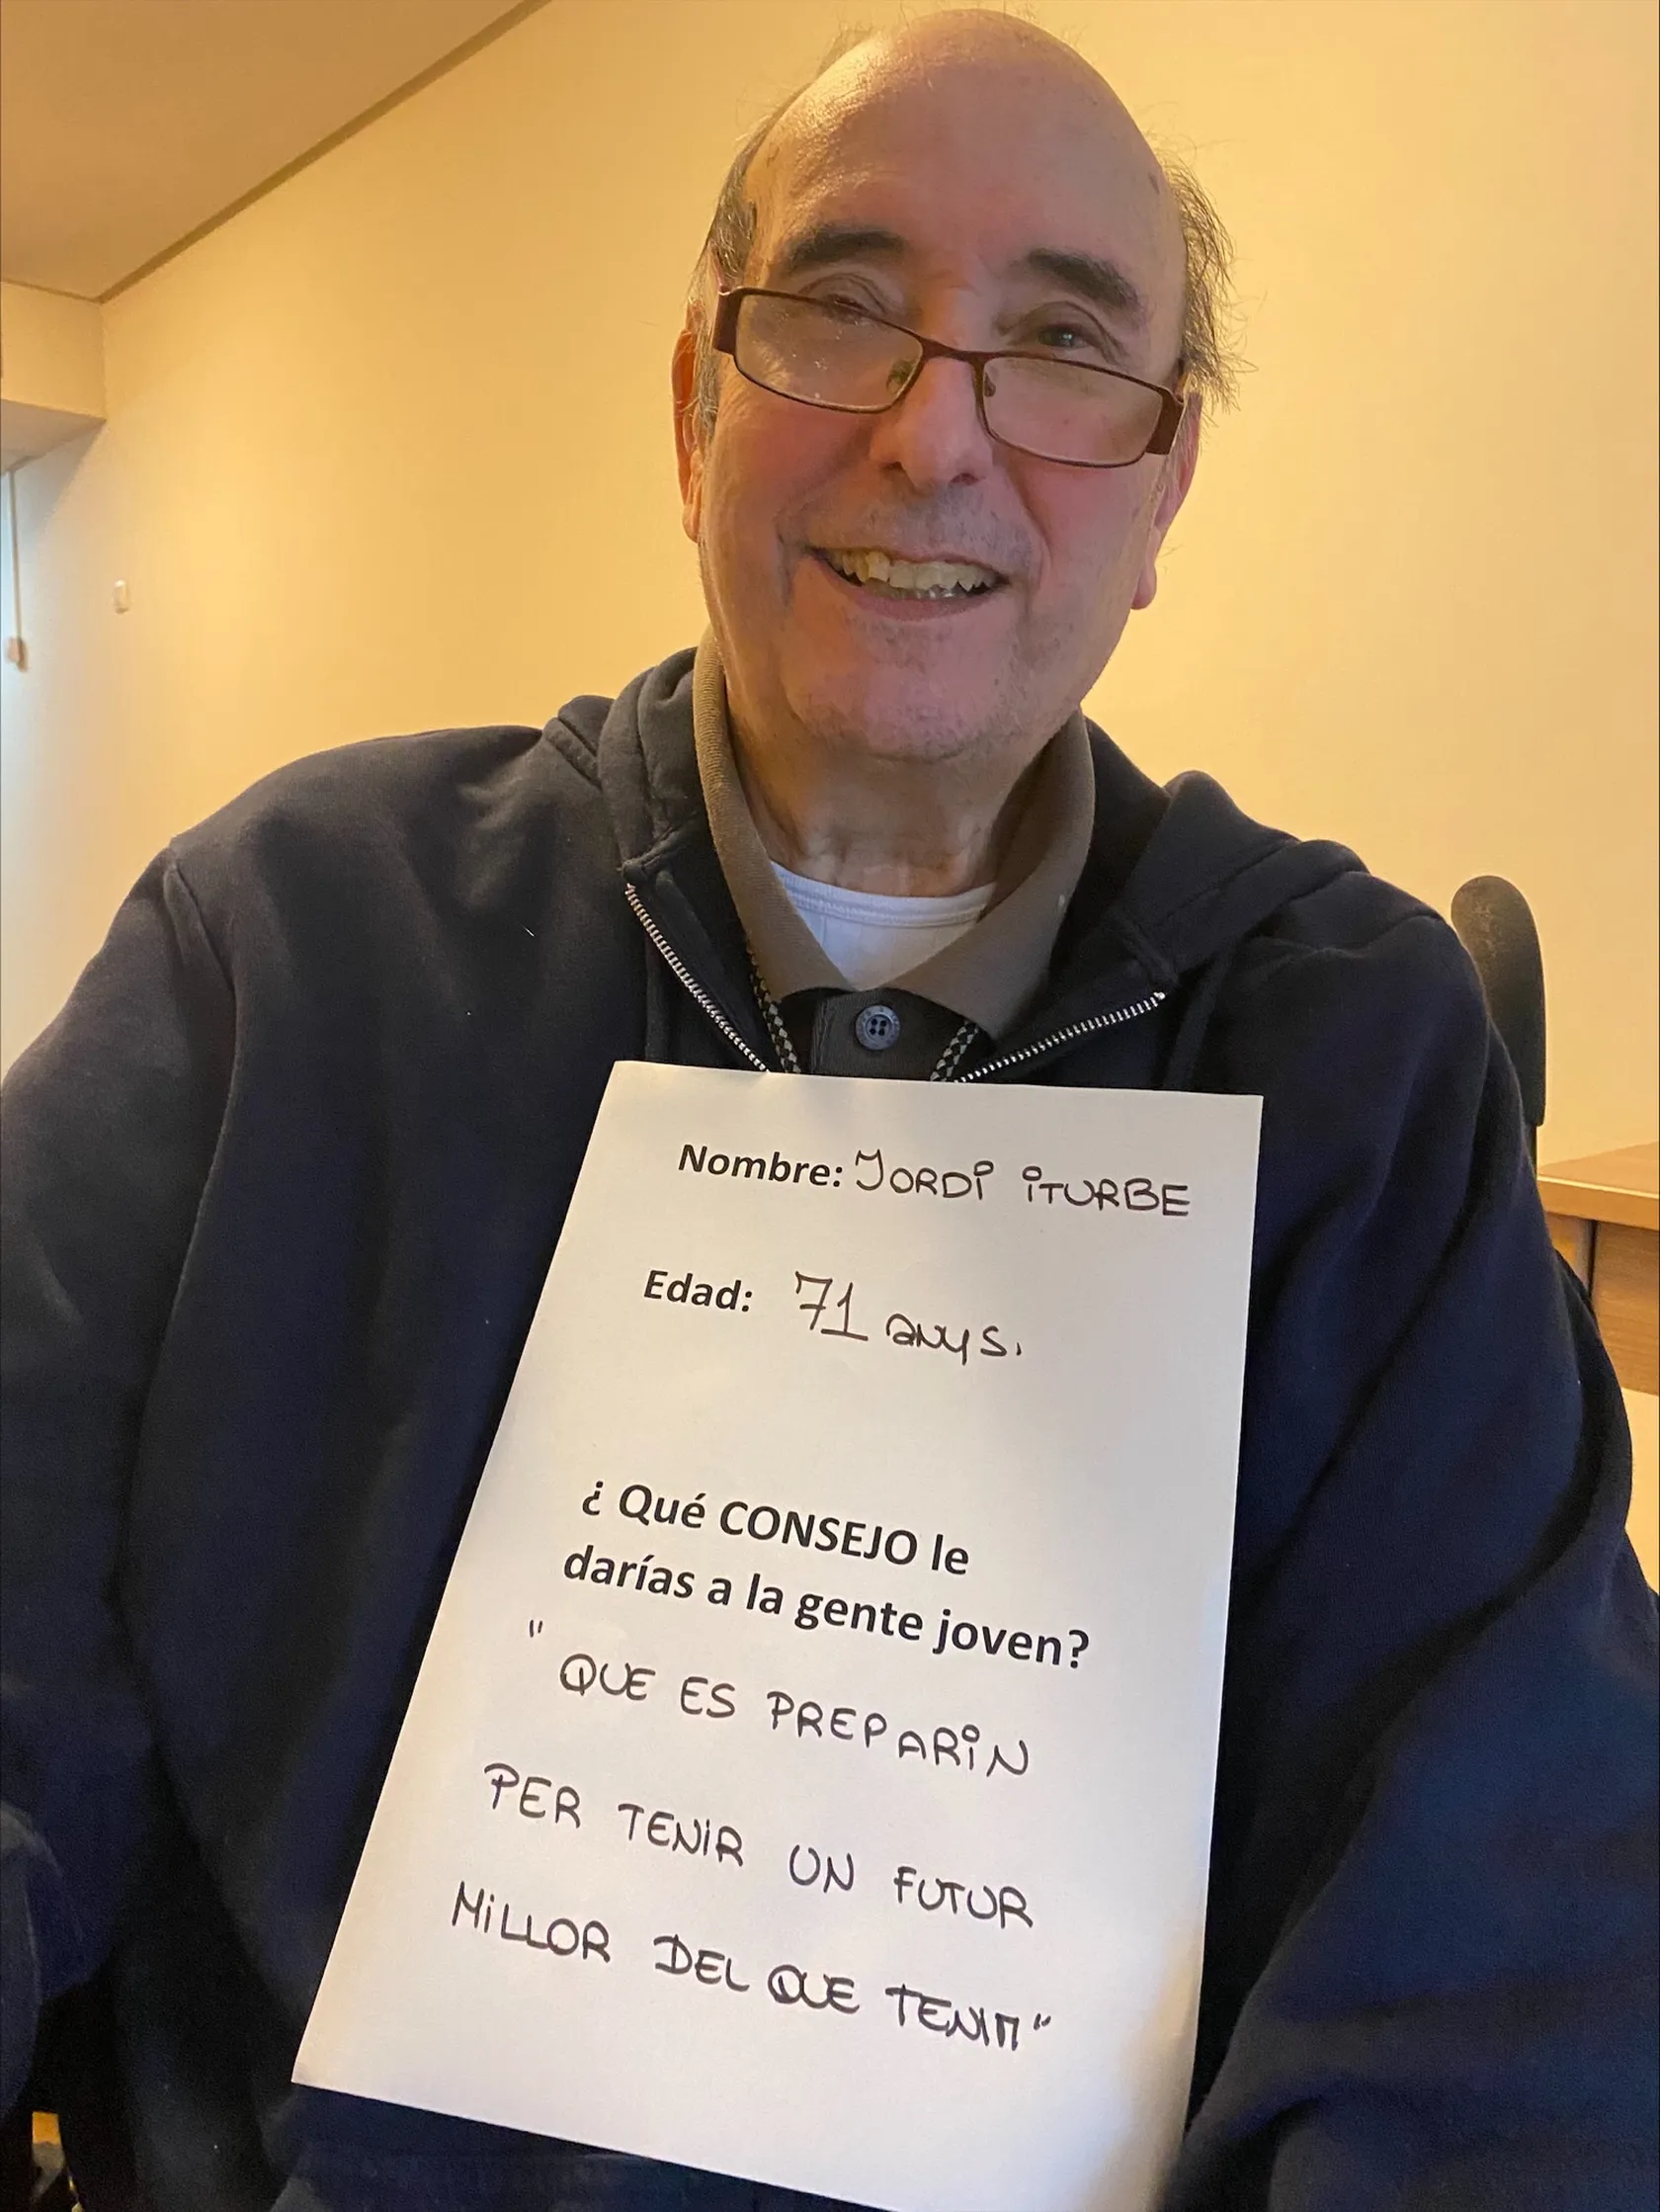 Nombre: JORDI ITURBE
Edad: 71 anys.
¿ Qué CONSEJO le
darías a la gente joven?
" QUE ES PREPARIN
PER TENIR UN FUTUR
MILLOR DEL QUE TENIM"